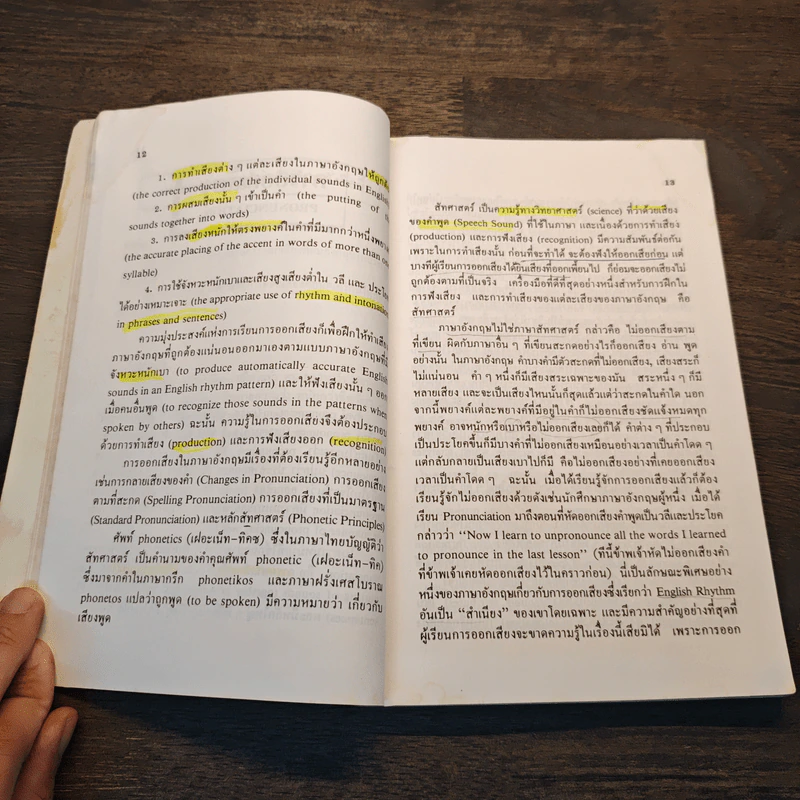 12
1. การทำเสียงต่าง ๆ แต่ละเสียงในภาษาอังกฤษให้ถูกต้อง
(the correct production of the individual sounds in English)
2. การผสมเสียงนั้น ๆ เข้าเป็นคำ (the putting of the
sounds together into words)
3. การลงเสียงหนักให้ตรงพยางค์ในคำที่มีมากกว่าหนึ่งพยางค์
(the accurate placing of the accent in words of more than one
syllable)
4. การใช้จังหวะหนักเบาและเสียงสูงเสียงต่ำใน วลี และ ประโยค
ได้อย่างเหมาะเจาะ (the appropriate use of rhythm and intonation
in phrases and sentences)
ความมุ่งประสงค์แห่งการเรียนการออกเสียงก็เพื่อฝึกให้ทำเสียง
ภาษาอังกฤษที่ถูกต้องแน่นอนออกมาเองตามแบบภาษาอังกฤษที่มี
จังหวะหนักเบา (to produce automatically accurate English
sounds in an English rhythm pattern) และให้ฟังเสียงนั้น ๆ ออก
เมื่อคนอื่นพูด (to recognize those sounds in the patterns when
spoken by others) ฉะนั้น ความรู้ในการออกเสียงจึงต้องประกอบ
ด้วยการทำเสียง (production) และการฟังเสียงออก (recognition)
การออกเสียงในภาษาอังกฤษมีเรื่องที่ต้องเรียนรู้อีกหลายอย่าง
เช่นการกลายเสียงของคำ (Changes in Pronunciation) การออกเสียง
ตามที่สะกด (Spelling Pronunciation) การออกเสียงที่เป็นมาตรฐาน
(Standard Pronunciation) และหลักสัทศาสตร์ (Phonetic Principles)
ศัพท์ phonetics (เฝอะเน็ท-ทิคซ) ซึ่งในภาษาไทยบัญญัติว่า
สัทศาสตร์ เป็นคำนามของคำคุณศัพท์ phonetic (เฝอะเน็ท-ทิค)
ซึ่งมาจากคำในภาษากรีก phonetikos และภาษาฝรั่งเศสโบราณ
phonetos แปลว่าถูกพูด (to be spoken) มีความหมายว่า เกี่ยวกับ
เสียงพูด
13
สัทศาสตร์ เป็นความรู้ทางวิทยาศาสตร์ (science) ที่ว่าด้วยเสียง
ของคำพูด (Speech Sound) ที่ใช้ในภาษา และเนื่องด้วยการทำเสียง
(production) และการฟังเสียง (recognition) มีความสัมพันธ์ต่อกัน
เพราะในการทำเสียงนั้น ก่อนที่จะทำได้ จะต้องฟังให้ออกเสียก่อน แต่
บางทีผู้เรียนการออกเสียงได้ยินเสียงที่ออกเพี้ยนไป ก็ย่อมจะออกเสียงไม่
ถูกต้องตามที่เป็นจริง เครื่องมือที่ดีที่สุดอย่างหนึ่งสำหรับการฝึกใน
การฟังเสียง และการทำเสียงของแต่ละเสียงของภาษาอังกฤษ คือ
สัทศาสตร์
ภาษาอังกฤษไม่ใช่ภาษาสัทศาสตร์ กล่าวคือ ไม่ออกเสียงตาม
ที่เขียน ผิดกับภาษาอื่น ๆ ที่เขียนสะกดอย่างไรก็ออกเสียง อ่าน พูด
อย่างนั้น ในภาษาอังกฤษ คำบางคำมีตัวสะกดที่ไม่ออกเสียง, เสียงสระก็
ไม่แน่นอน คำ ๆ หนึ่งก็มีเสียงสระเฉพาะของมัน สระหนึ่ง ๆ ก็มี
หลายเสียง และจะเป็นเสียงไหนนั้นก็สุดแล้วแต่ว่าสะกดในคำใด นอก
จากนี้พยางค์แต่ละพยางค์ที่มีอยู่ในคำก็ไม่ออกเสียงชัดแจ้งหมดทุก
พยางค์ อาจหนักหรือเบาหรือไม่ออกเสียงเลยก็ได้ คำต่าง ๆ ที่ประกอบ
เป็นประโยคขึ้นก็มีบางคำที่ไม่ออกเสียงเหมือนอย่างเวลาเป็นคำโดด ๆ
แต่กลับกลายเป็นเสียงเบาไปก็มี คือไม่ออกเสียงอย่างที่เคยออกเสียง
เวลาเป็นคำโดด ๆ ฉะนั้น เมื่อได้เรียนรู้จักการออกเสียงแล้วก็ต้อง
เรียนรู้จักไม่ออกเสียงด้วยดังเช่นนักศึกษาภาษาอังกฤษผู้หนึ่ง เมื่อได้
เรียน Pronunciation มาถึงตอนที่หัดออกเสียงคำพูดเป็นวลีและประโยค
กล่าวว่า “Now I learn to unpronounce all the words I learned
to pronounce in the last lesson” (ทีนี้ข้าพเจ้าหัดไม่ออกเสียงคำ
ที่ข้าพเจ้าเคยหัดออกเสียงไว้ในคราวก่อน) นี่เป็นลักษณะพิเศษอย่าง
หนึ่งของภาษาอังกฤษเกี่ยวกับการออกเสียงซึ่งเรียกว่า English Rhythm
อันเป็น “สำเนียง” ของเขาโดยเฉพาะ และมีความสำคัญอย่างที่สุดที่
ผู้เรียนการออกเสียงจะขาดความรู้ในเรื่องนี้เสียมิได้ เพราะการออก